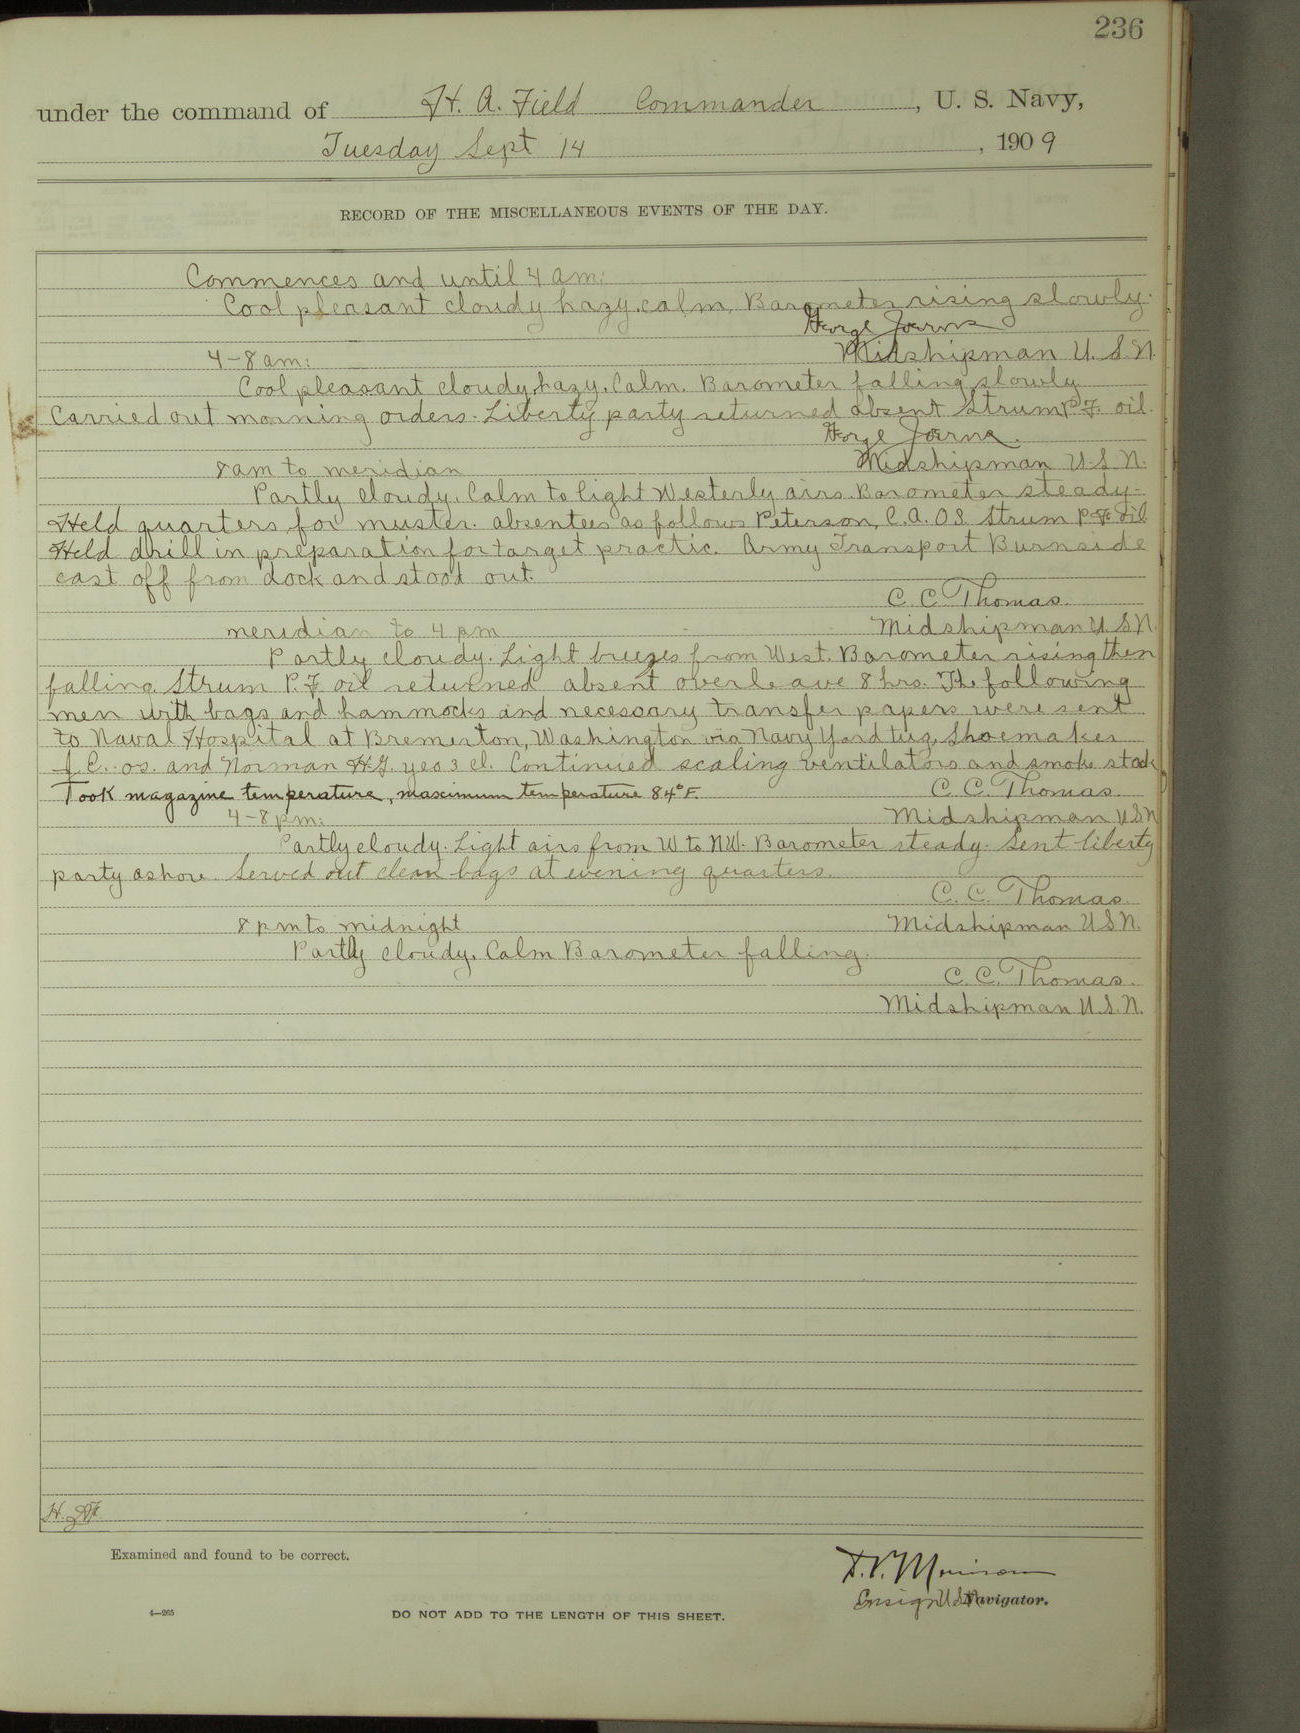 236
under the command of H. A. Field Commander, U. S. Navy,
Tuesday Sept 14, 1909
RECORD OF THE MISCELLANEOUS EVENTS OF THE DAY.
Commences and until 4 am:
Cool pleasant cloudy hazy. calm. Barometer rising slowly.
George
Midshipman U. S. N.
4-8 am:
Cool pleasant cloudy, hazy. Calm. Barometer falling slowly
Carried out morning orders. Liberty party returned absent Strum P. F. oil.
George
Midshipman U. S. N.
8 am to meridian
Partly cloudy. Calm to light Westerly airs. Barometer steady.
Held quarters for muster. absentees as follows Peterson, C. A. O S. Strum P. F. Oil
Held drill in preparation for target practic. Army Transport Burnside
cast off from dock and stood out.
C. C. Thomas.
Midshipman U. S. N.
meridian to 4 pm
Partly cloudy. Light breezes from West. Barometer rising then
falling. Strum P. F oil returned absent overleave 8 hrs. The following
men with bags and hammocks and necessary transfer papers were sent
to Naval Hospital at Bremerton, Washington via Navy Yard tug, Shoemaker
J. C. os. and Norman H. G. yeo 3 cl. Continued scaling ventilators and smoke stack
Took magazine temperature, maximum temperature 84° F.
C. C. Thomas.
Midshipman U S N
4-8 pm:
Partly cloudy. Light airs from W to NW. Barometer steady. Sent liberty
party ashore. Served out clean bags at evening quarters.
C. C. Thomas.
Midshipman U. S. N.
8 pm to midnight
Partly cloudy. Calm Barometer falling.
C. C. Thomas.
Midshipman U. S. N.
Examined and found to be correct.
Ensign U S N Navigator.
4—265
DO NOT ADD TO THE LENGTH OF THIS SHEET.